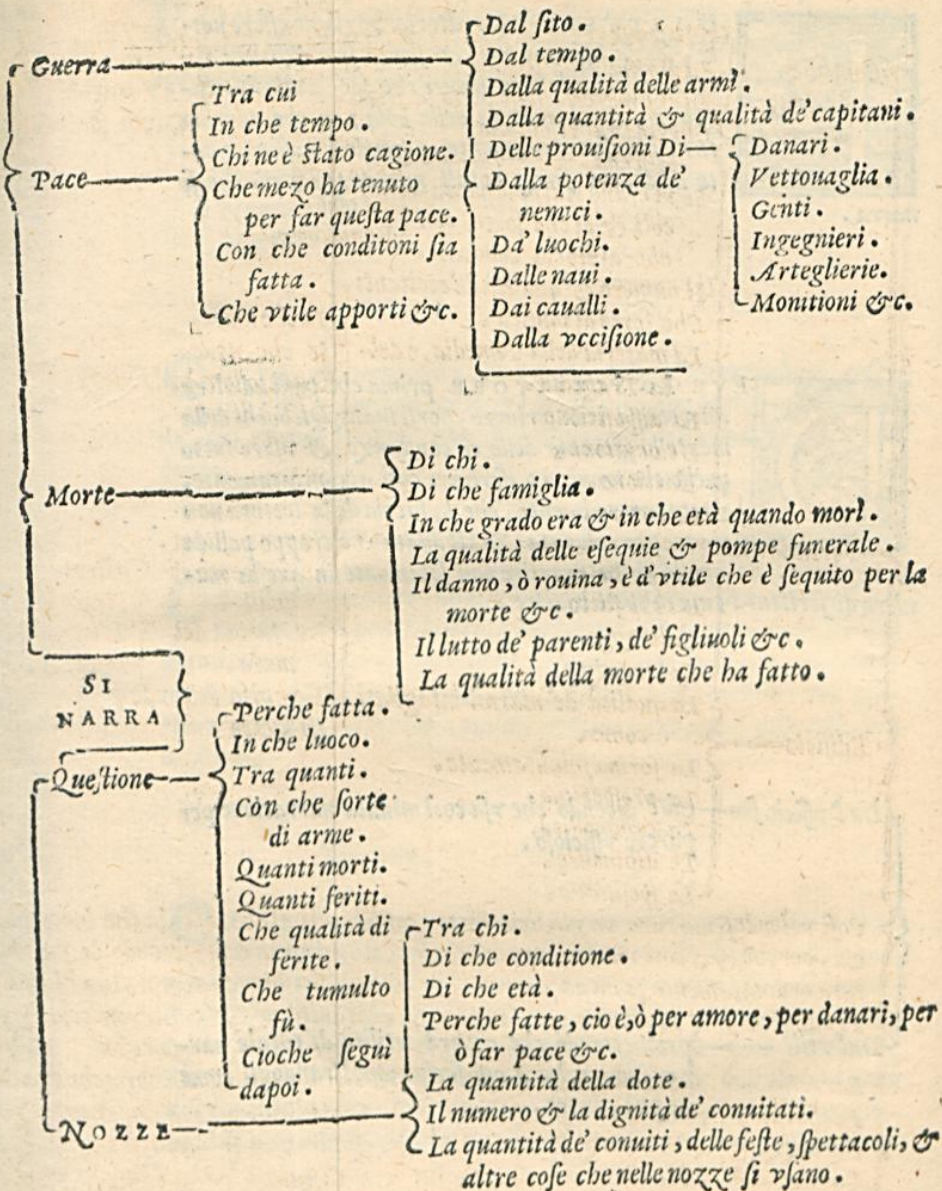 Guerra
Dal ſito.
Dal tempo.
Dalla qualità delle armi.
Dalla quantità & qualità de' capitani.
Delle prouiſioni Di
Danari.
Vettouaglia.
Genti.
Ingegnieri.
Arteglierie.
Monitioni &c.
Dalla potenza de'
nemici.
Da' luochi.
Dalle naui.
Dai caualli.
Dalla vcciſione.
Pace
Tra cui
In che tempo.
Chi ne è ſtato cagione.
Che mezo ha tenuto
per far queſta pace.
Con che conditoni ſia
fatta.
Che vtile apporti &c.
Morte
Di chi.
Di che famiglia.
In che grado era & in che età quando morì.
La qualità delle eſequie & pompe funerale.
Il danno, ò rouina, è d'vtile che è ſequito per la
morte &c.
Il lutto de' parenti, de' figliuoli &c.
La qualità della morte che ha fatto.
SI
NARRA
Queſtione
Perche fatta.
In che luoco.
Tra quanti.
Còn che ſorte
di arme.
Quanti morti.
Quanti feriti.
Che qualità di
ferite.
Che tumulto
fù.
Cioche ſeguì
dapoi.
NOZZE
Tra chi.
Di che conditione.
Di che età.
Perche fatte, cio è, ò per amore, per danari, per
ò far pace &c.
La quantità della dote.
Il numero & la dignità de' conuitati.
La quantità de' conuiti, delle feſte, ſpettacoli, &
altre coſe che nelle nozze ſi vſano.